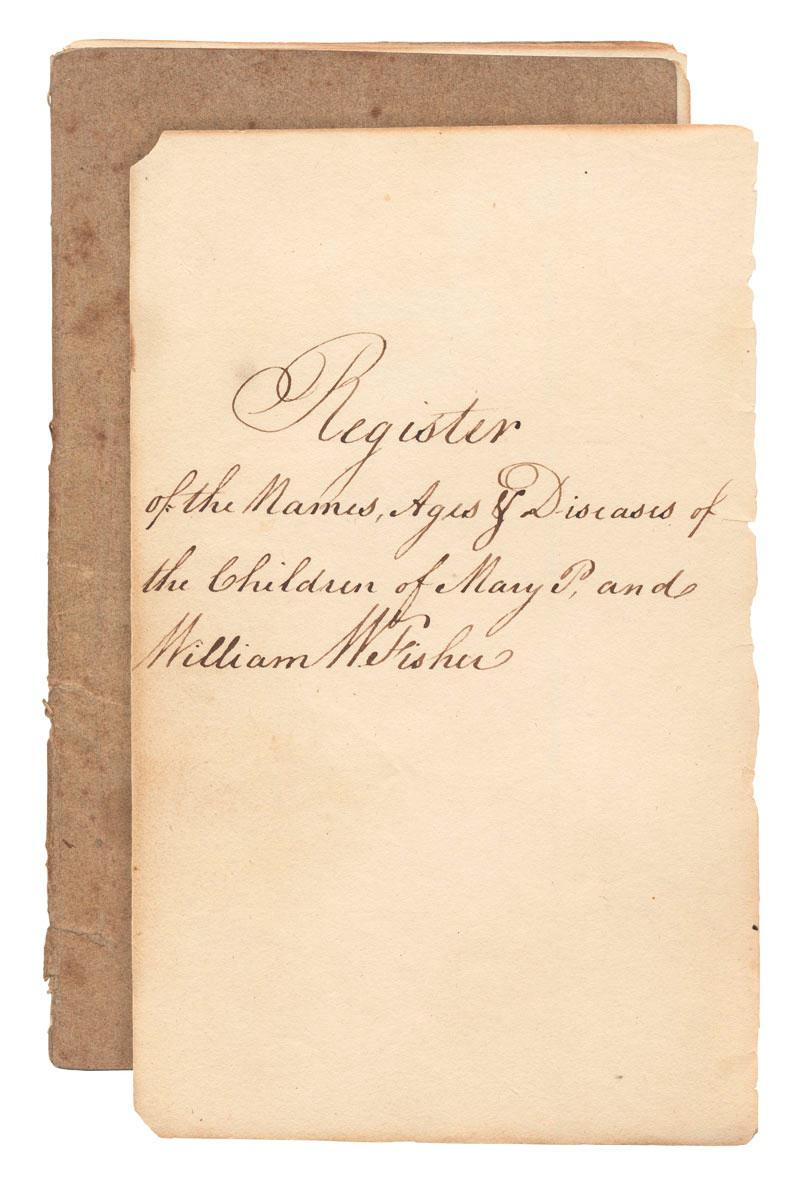 Register
of the Names, Ages & Diseases of
the Children of Mary P, and
William W. Fisher